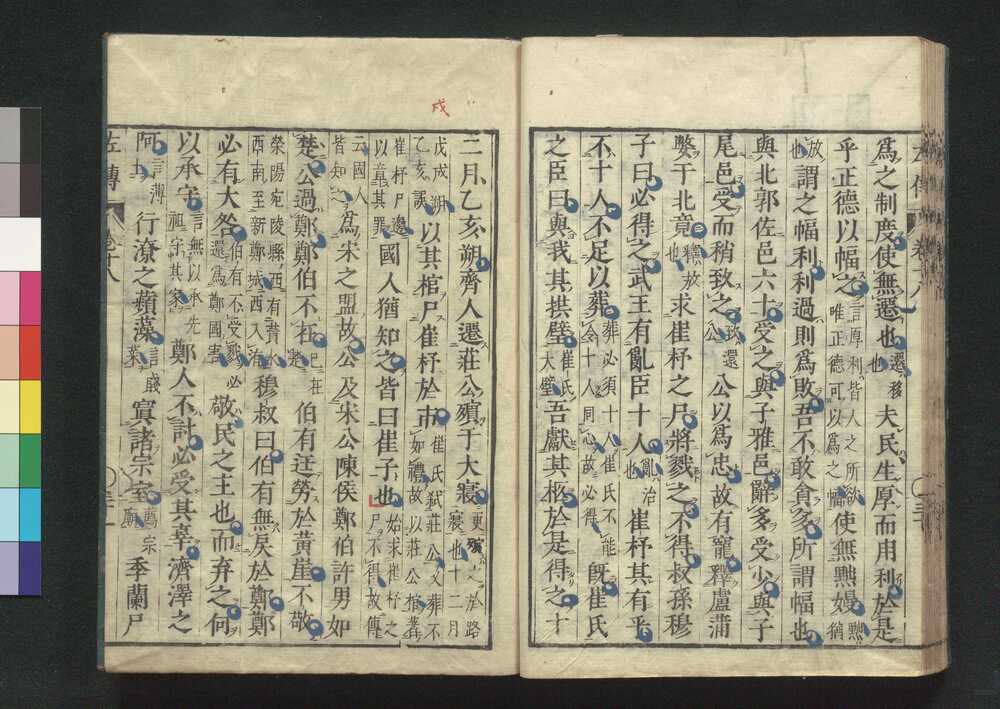 左傳 卷十八
爲之制度使無遷也遷移也夫民生厚而用利於是
乎正德以幅之言厚利皆人之所欲唯正德可以爲之幅使無黜嫚黜猶
放也謂之幅利利過則爲敗吾不敢貪多所謂幅也
與北郭佐邑六十受之與子雅邑辭多受少與子
尾邑受而稍致之致還公公以爲忠故有寵釋盧蒲
嫳于北竟釋放也求崔杼之尸將戮之不得叔孫穆
子曰必得之武王有亂臣十人亂治也崔杼其有乎
不十人不足以葬葬必須十人崔氏不能令十人同心故必得旣崔氏
之臣曰與我其拱璧崔氏大璧吾獻其柩於是得之十
戌
二月乙亥朔齊人遷莊公殯于大寢更殯之於路寢也十二月
戊戌朔乙亥誤以其棺尸崔杼於市崔氏弑莊公又葬不如禮故以莊公棺著
崔杼尸邊以章其罪國人猶知之皆曰崔子也始求崔杼之尸不得故傳
云國人皆知之爲宋之盟故公及宋公陳侯鄭伯許男如
楚公過鄭鄭伯不在已在楚伯有迋勞於黃崖不敬
滎陽宛陵縣西有黃水西南至新鄭城西入洧穆叔曰伯有無戾於鄭鄭
必有大咎伯有不受戮必還爲鄭國害敬民之主也而弃之何
以承守言無以承先祖守其家鄭人不討必受其辜濟澤之
阿言薄土行潦之蘋藻言賤菜寘諸宗室薦宗廟季蘭尸
左傳 卷十八